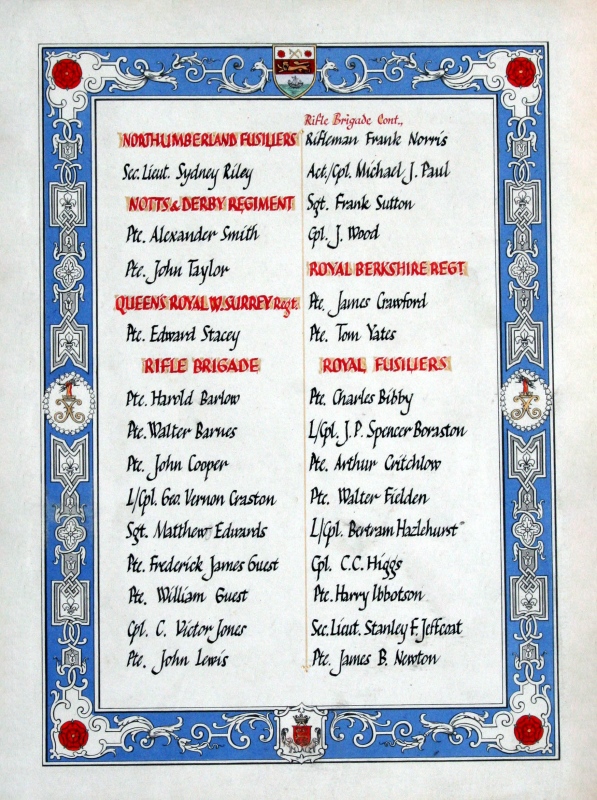 NORTHUMBERLAND FUSILIERS
Sec. Lieut. Sydney Riley
NOTTS & DERBY REGIMENT
Pte. Alexander Smith
Pte. John Taylor
QUEENS ROYAL W. SURREY Regt.
Pte. Edward Stacey
RIFLE BRIGADE
Pte. Harold Barlow
Pte. Walter Barnes
Pte. John Cooper
L/Cpl. Geo. Vernon Craston
Sgt. Matthew Edwards
Pte. Frederick James Guest
Pte. William Guest
Cpl. C. Victor Jones
Pte. John Lewis
Rifle Brigade Cont.,
Rifleman Frank Norris
Act/Cpl. Michael J. Paul
Sgt. Frank Sutton
Cpl. J. Wood
ROYAL BERKSHIRE REGT
Pte. James Crawford
Pte. Tom Yates
ROYAL FUSILIERS
Pte. Charles Bibby
L/Cpl. J.P. Spencer Boraston
Pte. Arthur Critchlow
Pte. Walter Fielden
L/Cpl. Bertram Hazlehurst
Cpl. C.C. Higgs
Pte. Harry Ibbotson
Sec. Lieut. Stanley F. Jeffcoat
Pte. James B. Newton